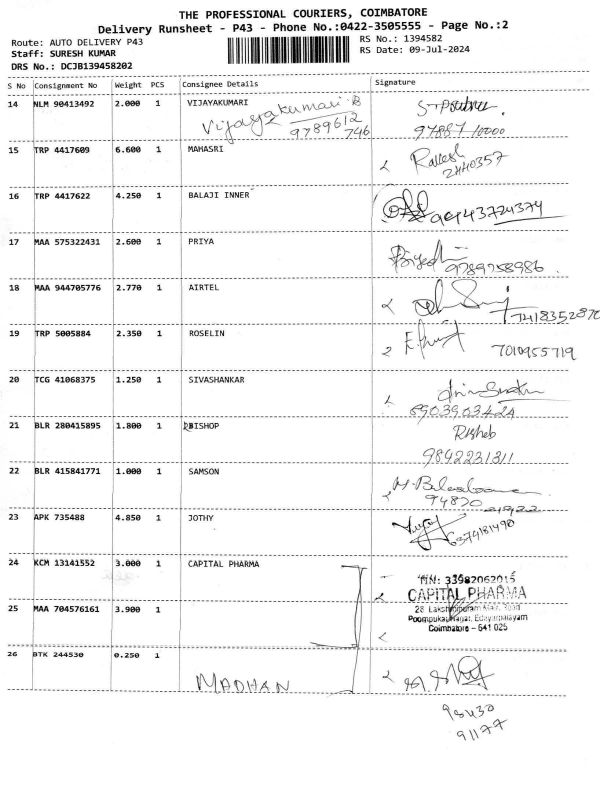 THE PROFESSIONAL COURIERS, COIMBATORE
Delivery Runsheet - P43 - Phone No.:0422-3505555 - Page No.:2
Route: AUTO DELIVERY P43
Staff: SURESH KUMAR
DRS No.: DCJB139458202
RS No.: 1394582
RS Date: 09-Jul-2024
S No Consignment No Weight PCS Consignee Details Signature
14 NLM 90413492 2.000 1 VIJAYAKUMARI
Vijayakumari B
9789612
746
97887 10000
15 TRP 4417609 6.600 1 MAHASRI
Rakesh
2440357
16 TRP 4417622 4.250 1 BALAJI INNER
17 MAA 575322431 2.600 1 PRIYA
9789758986
18 MAA 944705776 2.770 1 AIRTEL
7418352870
19 TRP 5005884 2.350 1 ROSELIN
7010955719
20 TCG 41068375 1.250 1 SIVASHANKAR
8903903424
21 BLR 280415895 1.800 1 BISHOP
9842231311
22 BLR 415841771 1.000 1 SAMSON
94870
23 APK 735488 4.850 1 JOTHY
6374181490
24 KCM 13141552 3.000 1 CAPITAL PHARMA
TIN: 33982062015
CAPITAL PHARMA
Coimbatore - 641 025
25 MAA 704576161 3.900 1
26 BTK 244530 0.250 1
MADHAN
98430
91177